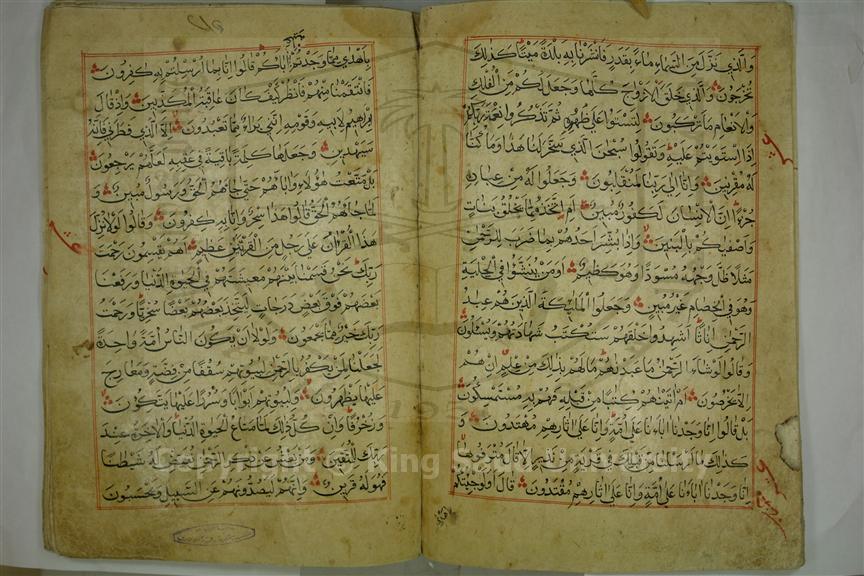 والذي نزل من السماء ماء بقدر فانشرنا به بلدة ميتا كذلك
تخرجون والذي خلق الازوج كلها وجعل لكم من الفلك
والانعام ما تركبون لتستوا على ظهوره ثم تذكروا نعمة ربكم
اذا استويتم عليه وتقولوا سبحن الذي سخر لنا هذا وما كنا
له مقرنين وانا الى ربنا لمنقلبون وجعلوا له من عباده
جزءا ان الانسان لكفور مبين ام اتخذ مما يخلق بنات
واصفيكم بالبنين واذا بشر احدهم بما ضرب للرحمن
مثلا ظل وجهه مسودا وهو كظيم اومن ينشؤا في الحلية
وهو في الخصام غير مبين وجعلوا الملئكة الذين هم عبد
الرحمن اناثا اشهدوا خلقهم ستكتب شهادتهم ويسئلون
وقالوا لو شاء الرحمن ما عبدناهم ما لهم بذلك من علم ان هم
الا يخرصون ام اتيناهم كتابا من قبله فهم به مستمسكون
بل قالوا انا وجدنا اباءنا على امة وانا على اثارهم مهتدون و
كذلك ما ارسلنا من قبلك في قرية من نذير الا قال مترفوها
انا وجدنا اباءنا على امة وانا على اثارهم مقتدون قال اولو جئتكم
باهدى مما وجدتم عليه اباءكم قالوا انا بما ارسلتم به كفرون
فانتقمنا منهم فانظر كيف كان عاقبة المكذبين واذ قال
ابرهيم لابيه وقومه انني براء مما تعبدون الا الذي فطرني فانه
سيهدين وجعلها كلمة باقية في عقبه لعلهم يرجعون
بل متعت هؤلاء واباءهم حتى جاءهم الحق ورسول مبين و
لما جاءهم الحق قالوا هذا سحر وانا به كفرون وقالوا لولا نزل
هذا القران على رجل من القريتين عظيم اهم يقسمون رحمت
ربك نحن قسمنا بينهم معيشتهم في الحيوة الدنيا ورفعنا
بعضهم فوق بعض درجات ليتخذ بعضهم بعضا سخريا ورحمت
ربك خير مما يجمعون ولولا ان يكون الناس امة واحدة
لجعلنا لمن يكفر بالرحمن لبيوتهم سقفا من فضة ومعارج
عليها يظهرون ولبيوتهم ابوابا وسررا عليها يتكون
وزخرفا وان كل ذلك لما متاع الحيوة الدنيا والاخرة عند
ربك للمتقين ومن يعش عن ذكر الرحمن نقيض له شيطنا
فهو له قرين وانهم ليصدونهم عن السبيل ويحسبون
1957
Copyright © King Saud University